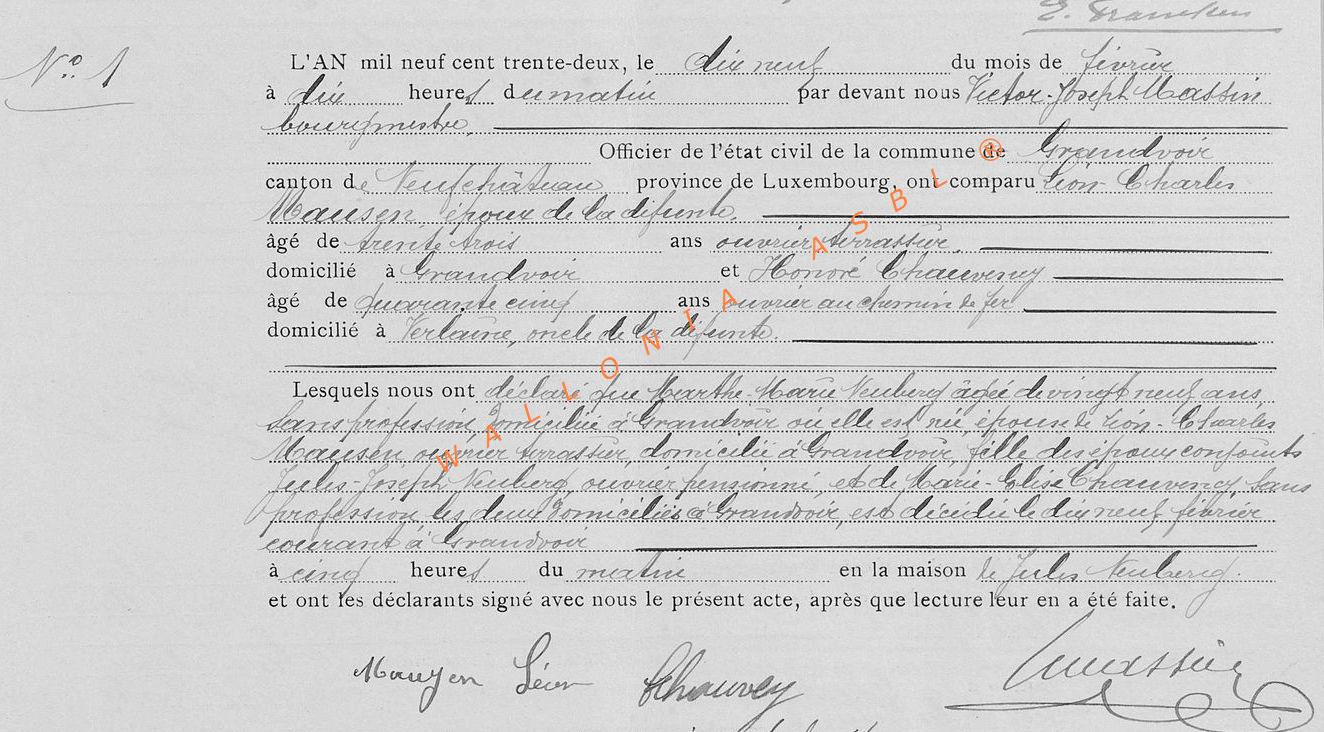 E. Francken
N° 1
L'AN mil neuf cent trente-deux, le dix neuf du mois de février
à dix heures du matin par devant nous Victor-Joseph Massin
bourgmestre,
Officier de l'état civil de la commune de Grandvoir
canton de Neufchâteau province de Luxembourg, ont comparu Léon-Charles
Mausen, époux de la défunte,
âgé de trente trois ans ouvrier terrassier,
domicilié à Grandvoir et Honoré Chauvency
âgé de quarante cinq ans ouvrier au chemin de fer
domicilié à Verlaine, oncle de la défunte.
Lesquels nous ont déclaré que Marthe-Marie Neuberg âgée de vingt neuf ans,
sans profession, domiciliée à Grandvoir où elle est née, épouse de Léon-Charles
Mausen, ouvrier terrassier, domicilié à Grandvoir, fille des époux conjoints
Jules-Joseph Neuberg, ouvrier pensionné, et de Marie-Elise Chauvency, sans
profession, les deux domiciliés à Grandvoir, est décédée le dix neuf février
courant à Grandvoir
à cinq heures du matin en la maison de Jules Neuberg.
et ont les déclarants signé avec nous le présent acte, après que lecture leur en a été faite.
Léon Massin
WALLONIA ASBL ®